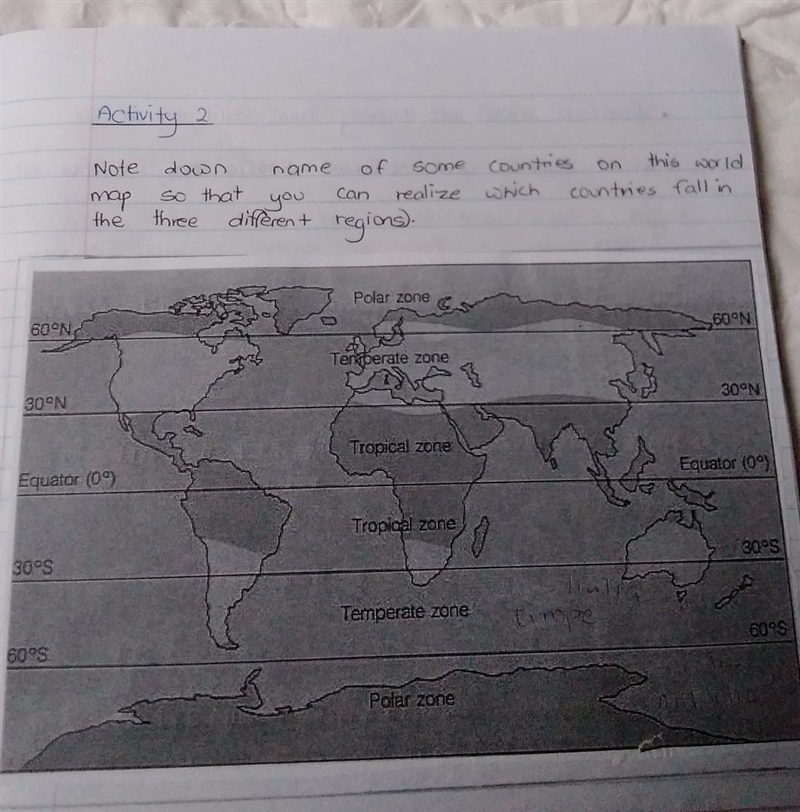 Activity 2
Note down name of some countries on this world
map so that you can realize which countries fall in
the three different regions).
Polar zone
60°N 60°N
Temperate zone
30°N 30°N
Tropical zone
Equator (0°) Equator (0°)
Tropical zone
30°S 30°S
Temperate zone
60°S 60°S
Polar zone